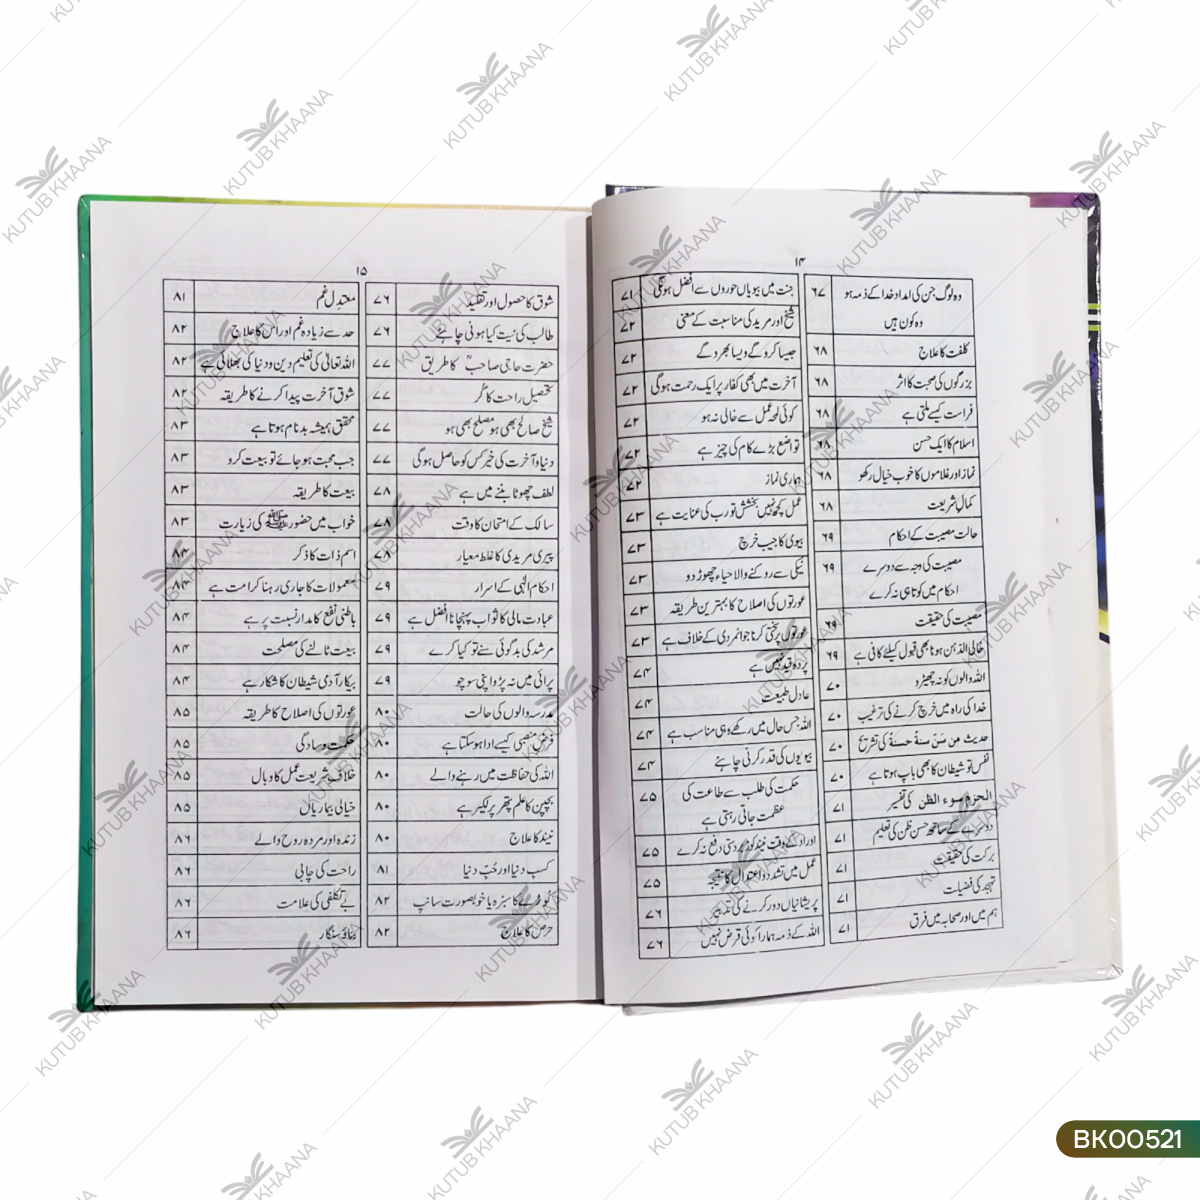 ۱۴
وہ لوگ جن کی امداد خدا کے ذمہ ہو ۶۷
وہ کون ہیں
کلفت کا علاج ۶۸
بزرگوں کی صحبت کا اثر ۶۸
فراست کیسے ملتی ہے ۶۸
اسلام کا ایک حسن ۶۸
نماز اور غلاموں کا خوب خیال رکھو ۶۸
کمال شریعت ۶۸
حالت مصیبت کے احکام ۶۹
مصیبت کی وجہ سے دوسرے ۶۹
احکام میں کوتاہی نہ کرے
مصیبت کی حقیقت ۶۹
خالی الذہن ہونا بھی قبول کیلئے کافی ہے ۶۹
اللہ والوں کو نہ چھیڑو ۷۰
خدا کی راہ میں خرچ کرنے کی ترغیب ۷۰
حدیث من سَنَّ سنة حسنة کی تشریح ۷۰
نفس تو شیطان کا بھی باپ ہوتا ہے ۷۰
الحزم سوء الظن کی تفسیر ۷۱
دوسرے کے ساتھ حسن ظن کی تعلیم ۷۱
برکت کی حقیقت ۷۱
تہجد کی فضیلت ۷۱
ہم میں اور صحابہ میں فرق ۷۱
جنت میں بیویاں حوروں سے افضل ہونگی ۷۱
شیخ اور مرید کی مناسبت کے معنی ۷۲
جیسا کرو گے ویسا بھرو گے ۷۲
آخرت میں بھی کفار پر ایک رحمت ہوگی ۷۲
کوئی لمحہ عمل سے خالی نہ ہو ۷۲
تواضع بڑے کام کی چیز ہے ۷۲
ہماری نماز ۷۲
عمل کچھ نہیں بخشش تو رب کی عنایت ہے ۷۳
بیوی کا جیب خرچ ۷۳
نیکی سے روکنے والا حیاء چھوڑ دو ۷۳
عورتوں کی اصلاح کا بہترین طریقہ ۷۳
عورتوں پر سختی کرنا جوانمردی کے خلاف ہے ۷۳
پردہ قید نہیں ہے ۷۴
عادل طبیعت ۷۴
اللہ جس حال میں رکھے وہی مناسب ہے ۷۴
بیویوں کی قدر کرنی چاہئے ۷۴
حکمت کی طلب سے طاعت کی ۷۵
عظمت جاتی رہتی ہے
اوراد کے وقت نیند کو زبردستی دفع نہ کرے ۷۵
عمل میں تشدد و اعتدال کا نتیجہ ۷۵
پریشانیاں دور کرنے کی تدبیر ۷۶
اللہ کے ذمہ ہمارا کوئی قرض نہیں ۷۶
۱۵
شوق کا حصول اور تقلید ۷۶
طالب کی نیت کیا ہونی چاہئے ۷۶
حضرت حاجی صاحبؒ کا طریق ۷۷
تحصیل راحت کا گر ۷۷
شیخ صالح بھی ہو مصلح بھی ہو ۷۷
دنیا و آخرت کی خیر کس کو حاصل ہوگی ۷۷
لطف چھوٹا بننے میں ہے ۷۸
سالک کے امتحان کا وقت ۷۸
پیری مریدی کا غلط معیار ۷۸
احکام الٰہی کے اسرار ۷۹
عبادت مالی کا ثواب پہنچانا افضل ہے ۷۹
مرشد کی بدگوئی سنے تو کیا کرے ۷۹
پرائی میں نہ پڑو اپنی سوچو ۷۹
مدرسہ والوں کی حالت ۸۰
فرض منصبی کیسے ادا ہو سکتا ہے ۸۰
اللہ کی حفاظت میں رہنے والے ۸۰
بچپن کا علم پتھر پر لکیر ہے ۸۰
نیند کا علاج ۸۰
کسب دنیا اور حُبّ دنیا ۸۱
کوڑے کا سبزہ یا خوبصورت سانپ ۸۲
حرص کا علاج ۸۲
معتدل غم ۸۱
حد سے زیادہ غم اور اس کا علاج ۸۲
اللہ تعالیٰ کی تعلیم دین و دنیا کی بھلائی ہے ۸۲
شوق آخرت پیدا کرنے کا طریقہ ۸۲
محقق ہمیشہ بدنام ہوتا ہے ۸۳
جب محبت ہو جائے تو بیعت کرو ۸۳
بیعت کا طریقہ ۸۳
خواب میں حضور ﷺ کی زیارت ۸۳
اسم ذات کا ذکر ۸۴
معمولات کا جاری رہنا کرامت ہے ۸۴
باطنی نفع کا مدار نسبت پر ہے ۸۴
بیعت ٹالنے کی مصلحت ۸۴
بیکار آدمی شیطان کا شکار ہے ۸۴
عورتوں کی اصلاح کا طریقہ ۸۵
حکمت و سادگی ۸۵
خلاف شریعت عمل کا وبال ۸۵
خیالی بیماریاں ۸۵
زندہ اور مردہ روح والے ۸۶
راحت کی چابی ۸۶
بے تکلفی کی علامت ۸۶
بناؤ سنگار ۸۶
KUTUB KHAANA
BK00521